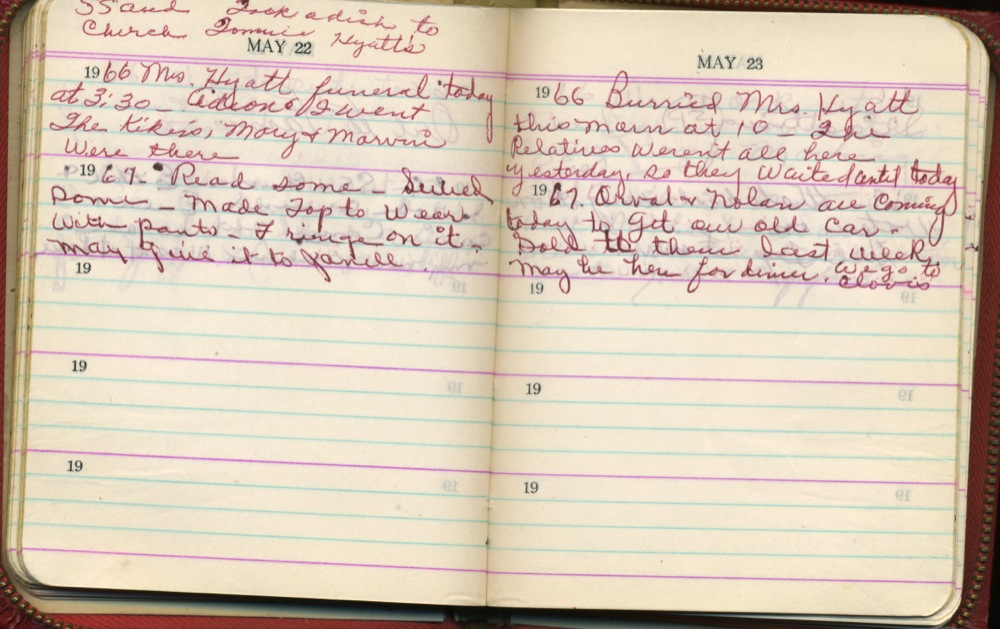 SS and Took a dish to
Church Tommie Hyatt's
MAY 22
1966 Mrs. Hyatt funeral today
at 3:30 - & I went
The Kiker's, Mary & Marvin
Were there
1967. Read some - Sewed
Some - Made Top to Wear
With pants - Fringe on it -
May give it to Janell.
19
19
19
MAY 23
1966 Burried Mrs. Hyatt
this morn at 10 -
Relatives Weren't all here
yesterday, so they Waited until today
1967. Orval & Nolan are Coming
today to get our old Car -
Sold to them last week,
May be here for dinner. We go to
Clovis
19
19
19